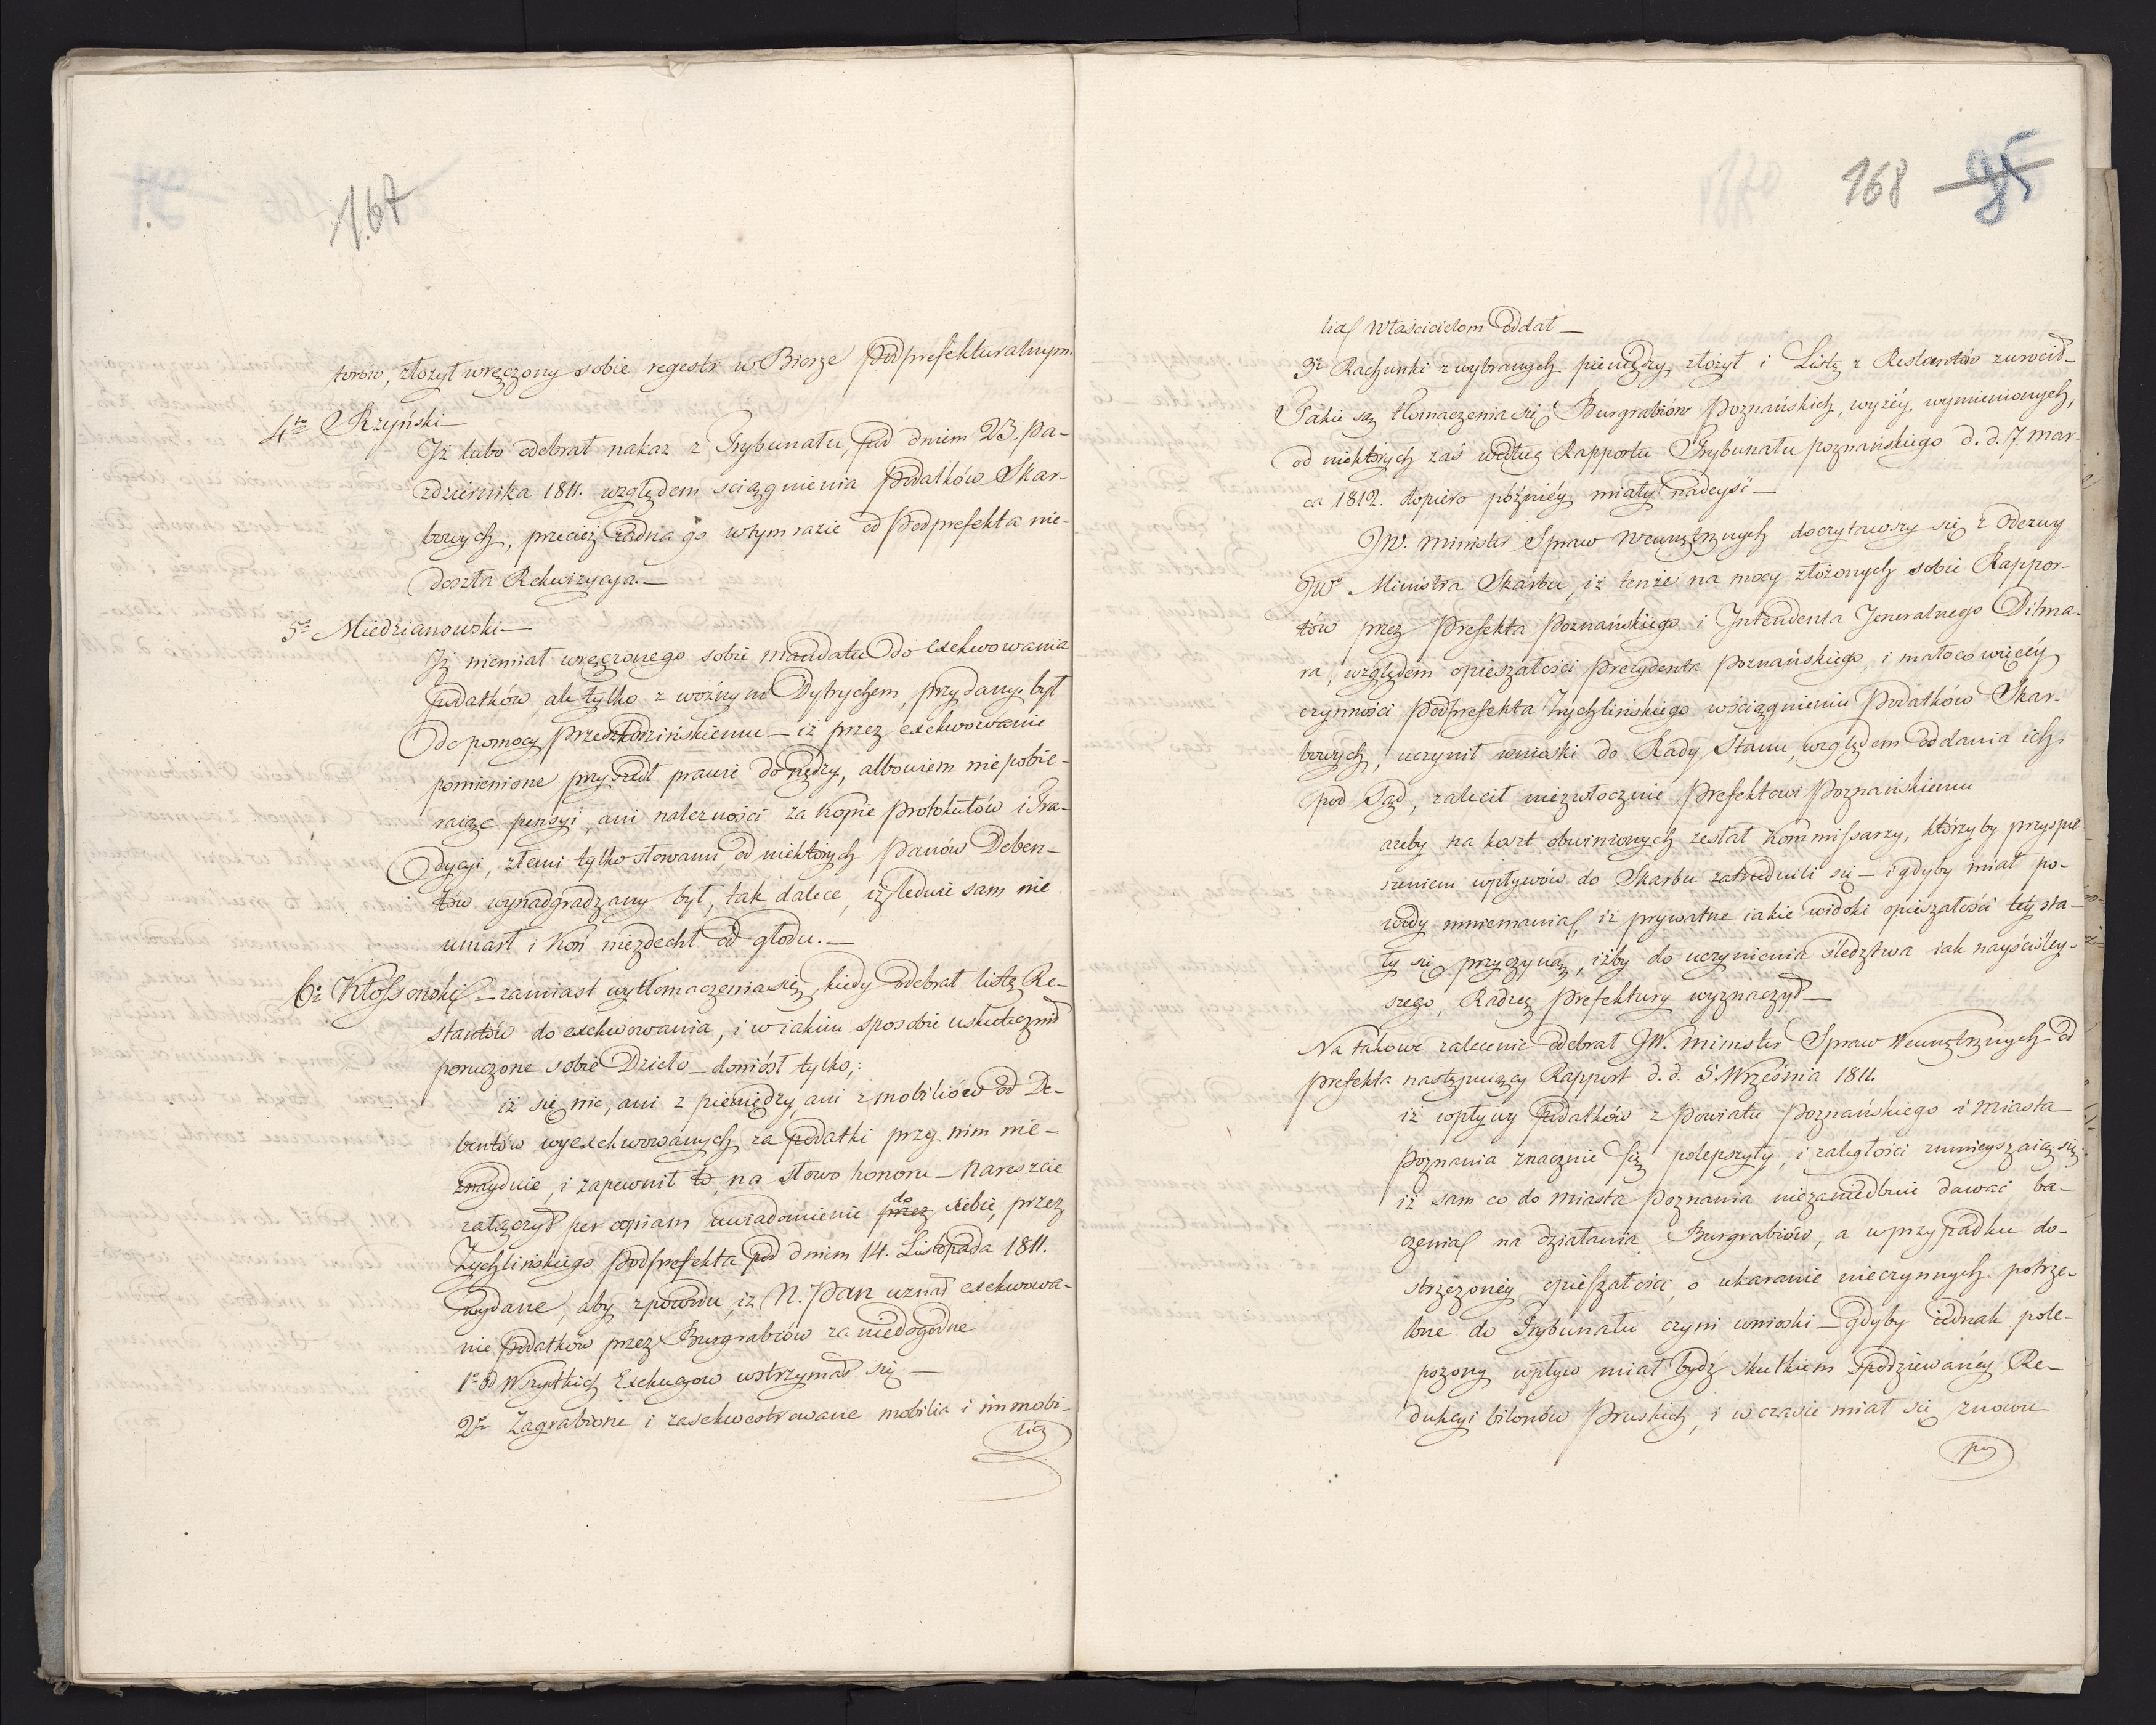 167
torów, złożył wręczony sobie regestr w Biorze Podprefekturalnym.
4to Rzyński —
Iż lubo odebrał nakaz z Trybunału, pod dniem 23. Pa-
zdziernika 1811. względem sciągnienia Podatków Skar-
bowych, przecież żadna go w tym razie od Podprefekta nie-
doszła Rekwizycya. —
5te Miedzianowski —
Iż niemiał wręczonego sobie mandatu do exekwowania
Podatków, ale tylko z woźnym Dytrychem, przydany był
do pomocy — iż przez exekwowanie
pomienione przyszedł prawie do nędzy, albowiem nie pobie-
raiąc pensyi, ani należności za kopie Protokułów i Tra-
dycyi, złemi tylko słowami, od niektórych Panów Deben-
tów wynadgradzany był, tak dalece, iż ledwie sam nie
umarł i koń niezdechł od głodu. —
6te Kłossowski — zamiast wytłomaczenia się, kiedy odebrał listę Re-
stantów do exekwowania, i w iakim sposobie uskutecznił
poruczone sobie Dzieło — doniósł tylko;:
iż się nic, ani z pieniędzy, ani z mobiliów od De-
bentów wyexekwowanych za podatki przy nim nie-
znayduie, i zapewnił to, na słowo honoru — Nareszcie
załączył per copiam uwiadomienie przez do siebie, przez
Zychlińskiego Podprefekta pod dniem 14. Listopada 1811.
wydane, aby z powodu, iż N. Pan uznał exekwowa-
nie podatków przez Burgrabiów za niedogodne
1e od Wszystkich Exekucyow wstrzymał się —
2e Zagrabione i zasekwestrowane mobilia i immobi-
lia
168 85
lia Właścicielom oddał —
3e Rachunki z wybranych pieniędzy złożył i Listę z Restantów zwrócił —
Takie są tłomaczenia się Burgrabiów Poznańskich, wyżéy wymienionych,
od niektórych zaś według Rapportu Trybunału poznańskiego d. d. 7. Mar-
ca 1812. dopiero późniéy miały nadeyść —
JW. Minister Spraw Wewnętrznych doczytawszy się z Odezwy
JWo Ministra Skarbu, iż tenże na mocy złożonych sobie Rappor-
tów przez Prefekta Poznańskiego i Intendenta Jeneralnego Ditma-
ra, względem opieszałości Prezydenta Poznańskiego, i mało co więcéy
czynności Podprefekta Zychlińskiego w ściągnieniu Podatków Skar-
bowych, uczynił wnioski do Rady Stanu, względem oddania ich
pod Sąd, zalecił niezwłocznie Prefektowi Poznańskiemu
ażeby na koszt obwinionych zesłał Kommissarzy, którzy by przyspie
szeniem wpływów do Skarbu zatrudnili się — i gdyby miał po-
wody mniemania, iż prywatne iakie widoki opieszałości téy sta-
ły się przyczyną, iżby do uczynienia śledztwa iak nayściśley-
szego, Radzcę Prefektury wyznaczył —
Na takowe zalecenie odebrał JW. Minister Spraw Wewnętrznych od
Prefekta następuiący Rapport d. d. 5 Września 1811.
iż wpływy podatków z Powiatu Poznańskiego i miasta
Poznania znacznie się polepszyły, i zaległości zmnieyszaią się
iż sam co do miasta Poznania niezaniedbuie dawać ba-
czenia na działania Burgrabiów, a w przypadku do-
strzeżonéy opieszałości, o ukaranie nieczynnych potrze-
bne do Trybunału czyni wnioski — gdyby iednak pole-
pszony wpływ miał bydź skutkiem spodziewanéy Re-
dukcyi bilonów Pruskich, i w czasie miał się znowu
po